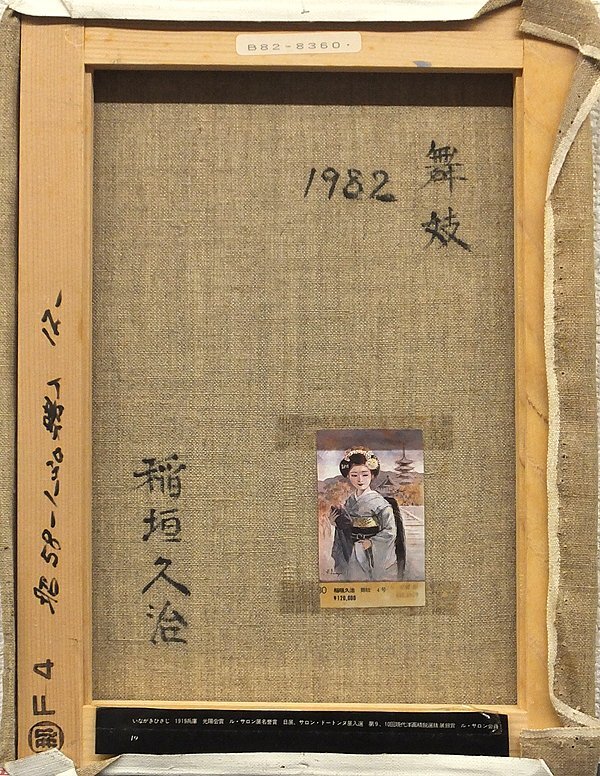 B82-8360.
舞妓
1982
稲垣久治
稲垣久治 舞妓 4号
¥120,000
いながきひさじ 1919兵庫 光陽会賞 ル・サロン展名誉賞 日展、サロン・ドートンヌ展入選 第9、10回現代洋画精鋭選抜展銀賞 ル・サロン会員
昭58-1-20 購入 12-
F4